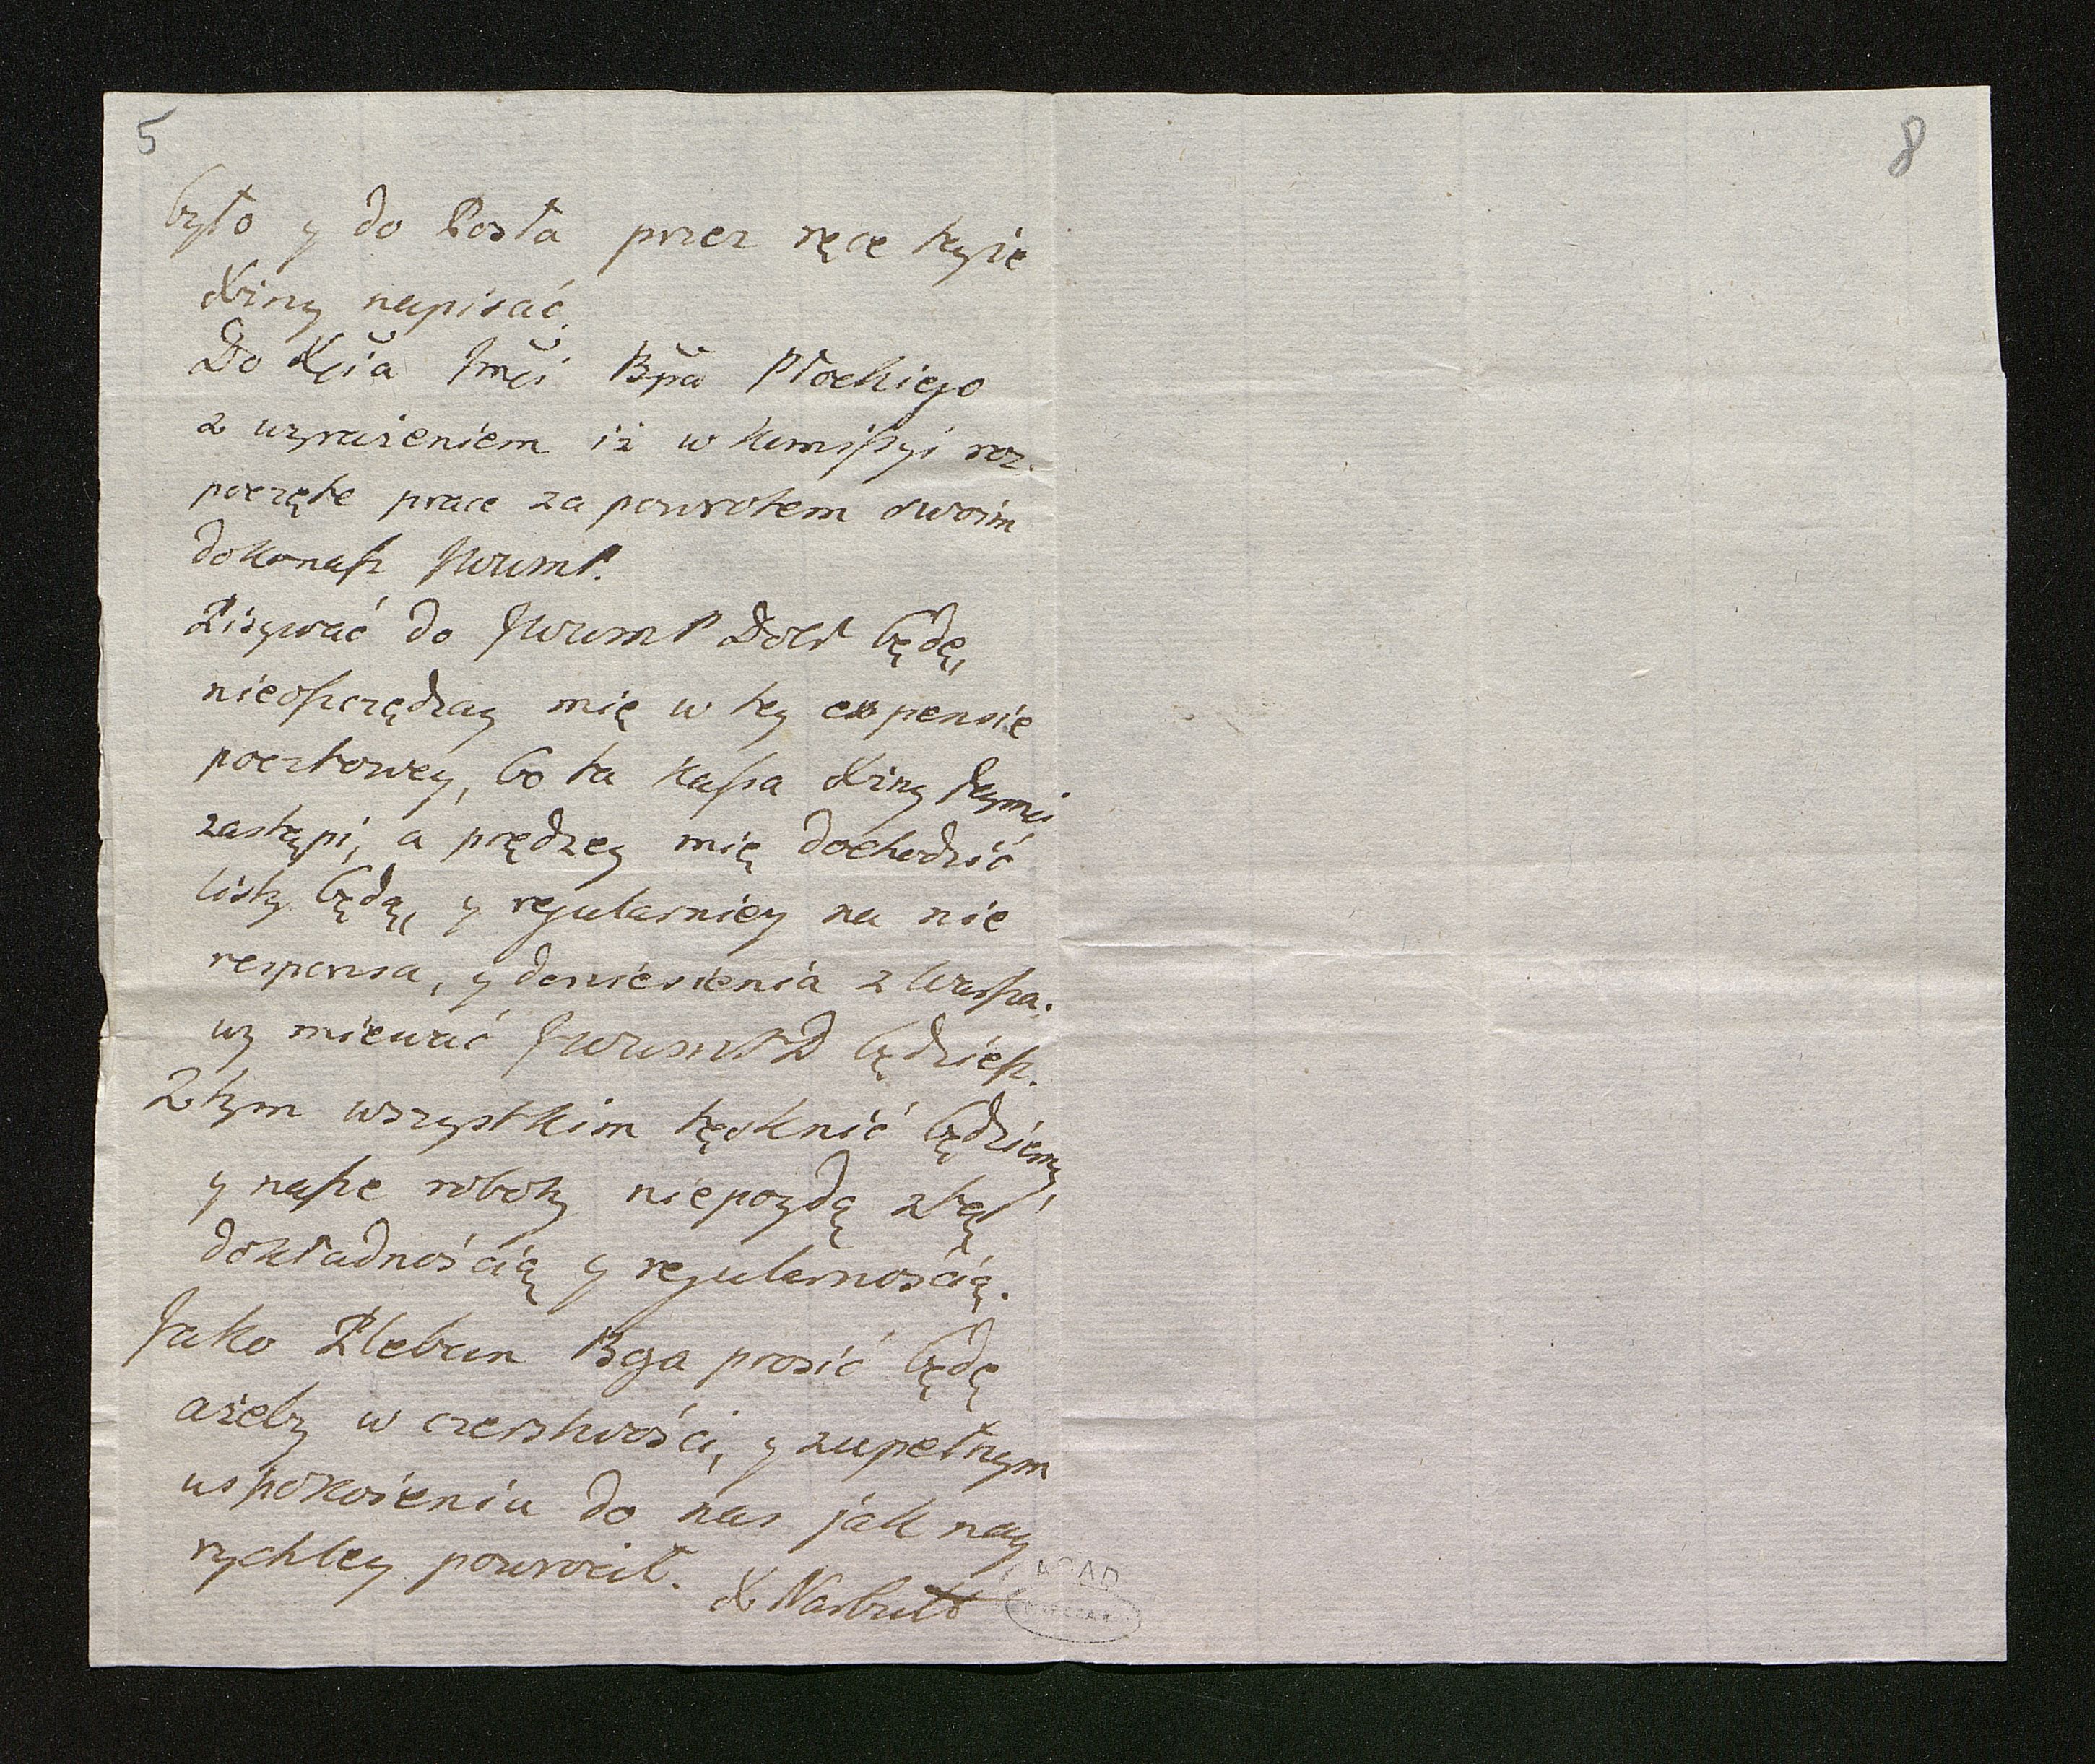 5
8
było y do Posła przez ręce teyże
Xżiny napisać.
Do Xcia Jmci Bpa Płockiego
z wyrażeniem iż w Komißyi roz-
poczęte prace za powrotem swoim
dokonaß JWWmP.
Pisywać do JWWmP Dobr będę,
nieoßczędzay mię w tey expensie
pocztowey, bo ta Kaßa Xżiny Jeymci
zastąpi, a prędzey mię dochodzić
listy będą, y regularniey na nie
responsa, y doniesienia z Warßa-
wy miewać JWWmPD będzieß.
Z tym wszystkim tęsknić będziemy,
y naße roboty niepoydą z tą
dokładnością y regularnością.
Jako Pleban Boga prosić będę
ażeby w czerstwości, y zupełnym
uspokoieniu do nas jak nay
rychley powrocił.
X Narbutt
AGAD